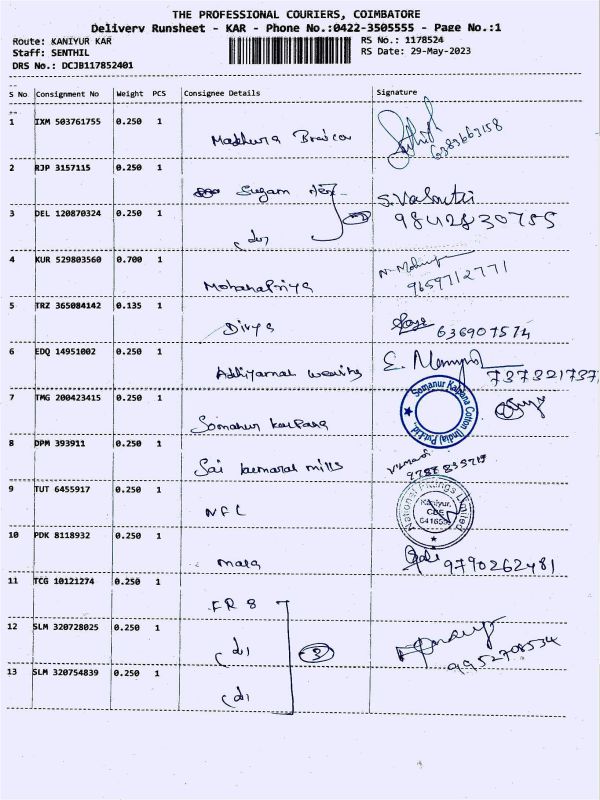 THE PROFESSIONAL COURIERS, COIMBATORE
Delivery Runsheet - KAR - Phone No.:0422-3505555 - Page No.:1
Route: KANIYUR KAR
RS No.: 1178524
Staff: SENTHIL
RS Date: 29-May-2023
DRS No.: DCJB117852401
S No Consignment No Weight PCS Consignee Details Signature
1 IXM 503761755 0.250 1
Madhura
6383663158
2 RJP 3157115 0.250 1
Sugam
3 DEL 120870324 0.250 1
9842830755
4 KUR 529803560 0.700 1
Mohanapriya
9659712771
5 TRZ 365084142 0.135 1
Divya
636907574
6 EDQ 14951002 0.250 1
737321737
7 TMG 200423415 0.250 1
Somanur Kalpana Cotton (India) Pvt.Ltd.,
Somanur Kalpana
8 DPM 393911 0.250 1
Sai kumaran mills
9 TUT 6455917 0.250 1
NFL
National Fittings Limited
Kaniyur,
10 PDK 8118932 0.250 1
mala
9790262481
11 TCG 10121274 0.250 1
FR 8
12 SLM 320728025 0.250 1
(do)
3
9952708534
13 SLM 320754839 0.250 1
(do)